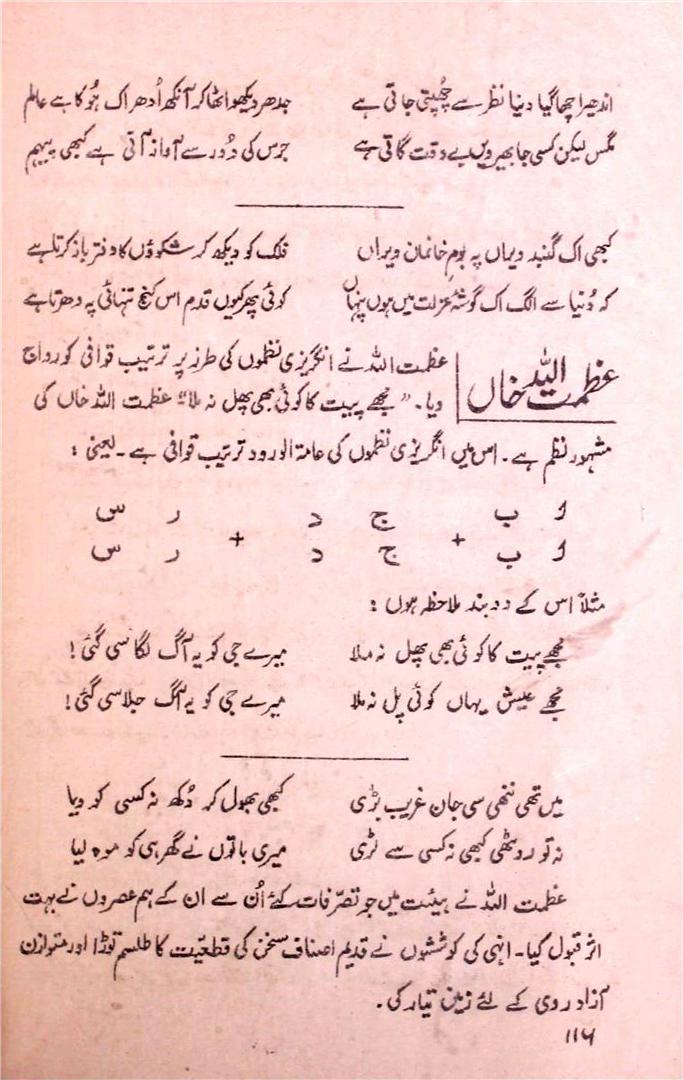 اندھیرا چھا گیا دنیا نظر سے چھُپتی جاتی ہے    جدھر دیکھو اٹھا کر آنکھ اُدھر اک ہُو کا ہے عالم
مگس لیکن کسی جا بھیرویں بے وقت گاتی ہے    جرس کی دُور سے آواز آتی ہے کبھی پیہم
کبھی اک گنبد ویراں پہ بُومِ خانماں ویراں    فلک کو دیکھ کر شکوؤں کا دفتر باز کرتا ہے
کہ دُنیا سے الگ اک گوشۂ عزلت میں ہوں پنہاں    کوئی پھر کیوں قدم اس کنج تنہائی پہ دھرتا ہے
عظمت اللہ خاں
عظمت اللہ نے انگریزی نظموں کی طرز پر ترتیب قوافی کو رواج
دیا۔ "مجھے پیت کا کوئی بھی پھل نہ ملا" عظمت اللہ خاں کی
مشہور نظم ہے۔ اس میں انگریزی نظموں کی عامۃ الورود ترتیب قوافی ہے۔ یعنی :
ا ب ج د ر س
+ +
ا ب ج د ر س
مثلاً اس کے دو بند ملاحظہ ہوں :
مجھے پیت کا کوئی بھی پھل نہ ملا    میرے جی کو یہ آگ لگا سی گئی !
مجھے عیش یہاں کوئی پل نہ ملا    میرے جی کو یہ آگ جلا سی گئی !
میں تھی ننھی سی جان غریب بڑی    کبھی بھول کر دُکھ نہ کسی کو دیا
نہ تو روٹھی کبھی نہ کسی سے لڑی    میری باتوں نے گھر ہی کو موہ لیا
عظمت اللہ نے ہیئت میں جو تصرّفات کئے اُن سے ان کے ہم عصروں نے بہت
اثر قبول کیا۔ انہی کی کوششوں نے قدیم اصناف سخن کی قطعیّت کا طلسم توڑا اور متوازن
آزاد روی کے لئے زمین تیار کی۔
۱۱۶